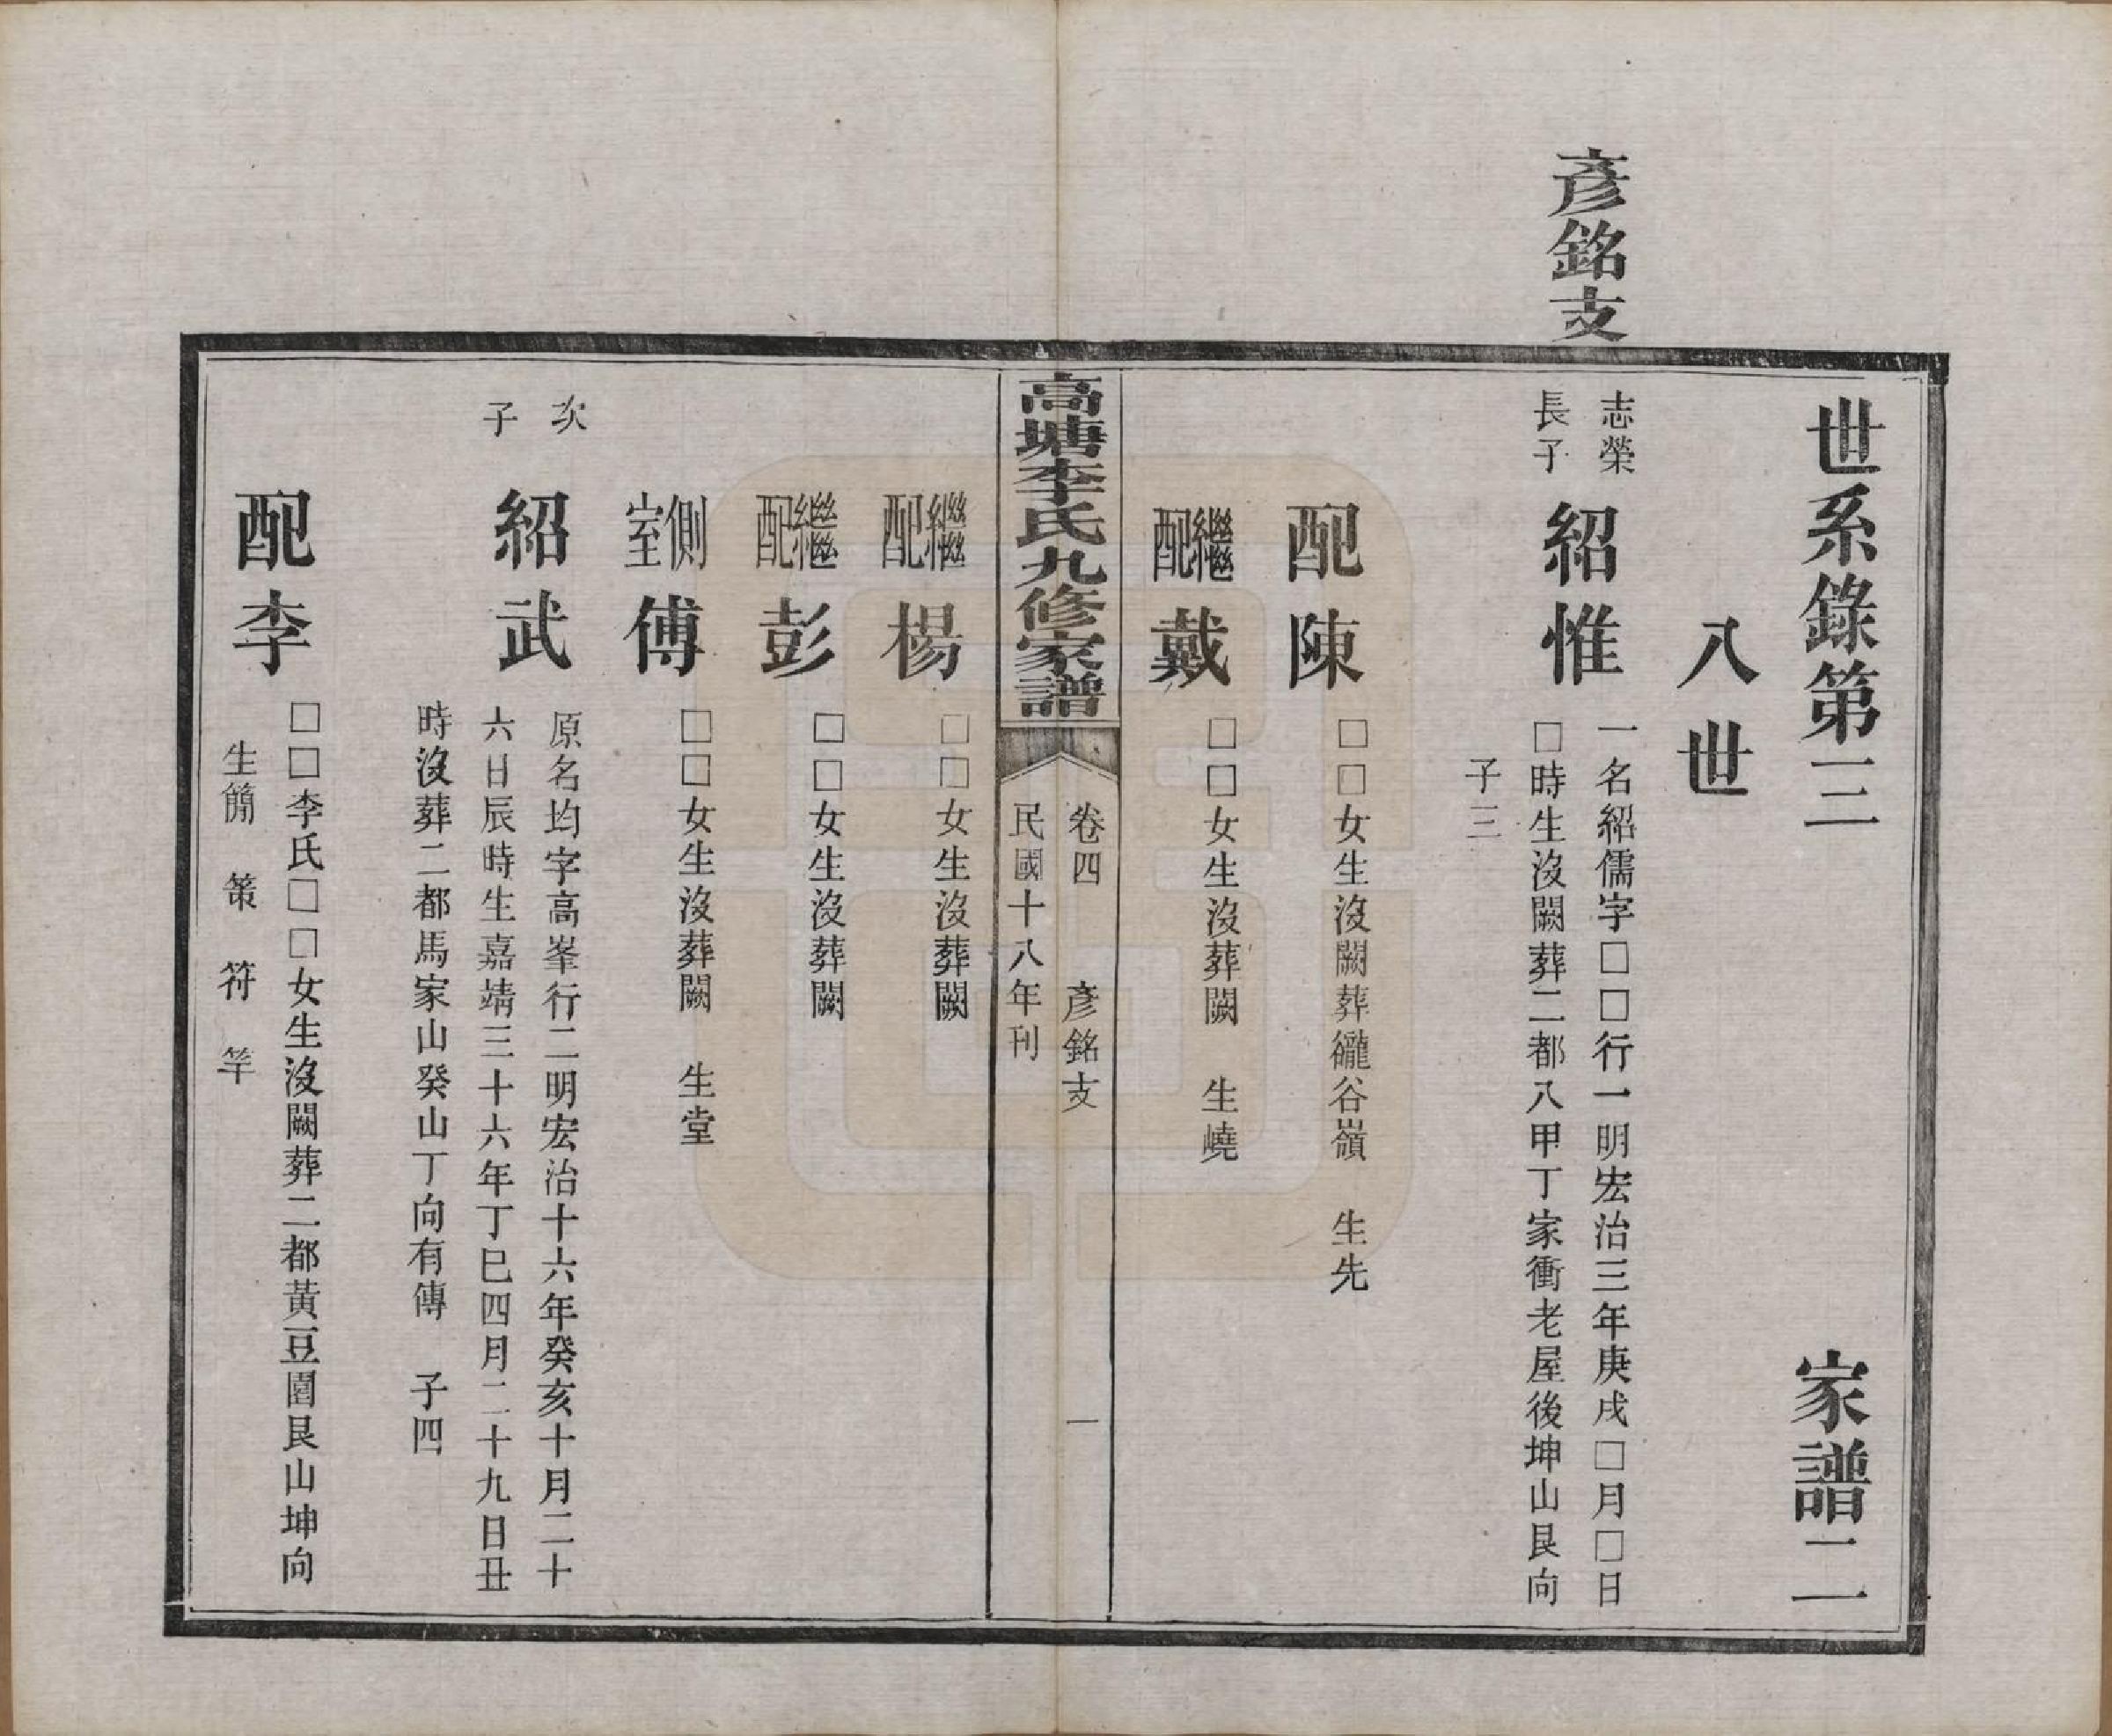 彥銘支
世系錄第三 家譜二
八世
志榮
長子
紹惟
一名紹儒字□□行一明宏治三年庚戌□月□日
□時生沒闕葬二都八甲丁家衝老屋後坤山艮向
子三
配陳
□□女生沒闕葬儱谷嶺 生先
繼配戴
□□女生沒葬闕 生嶢
高塘李氏九修家譜
卷四 彥銘支 一
民國十八年刊
繼配楊
□□女生沒葬闕
繼配彭
□□女生沒葬闕
側室傅
□□女生沒葬闕 生堂
次
子
紹武
原名均字高峯行二明宏治十六年癸亥十月二十
六日辰時生嘉靖三十六年丁巳四月二十九日丑
時沒葬二都馬家山癸山丁向有傳 子四
配李
□□李氏□□女生沒闕葬二都黃豆園艮山坤向
生簡 策 符 竿